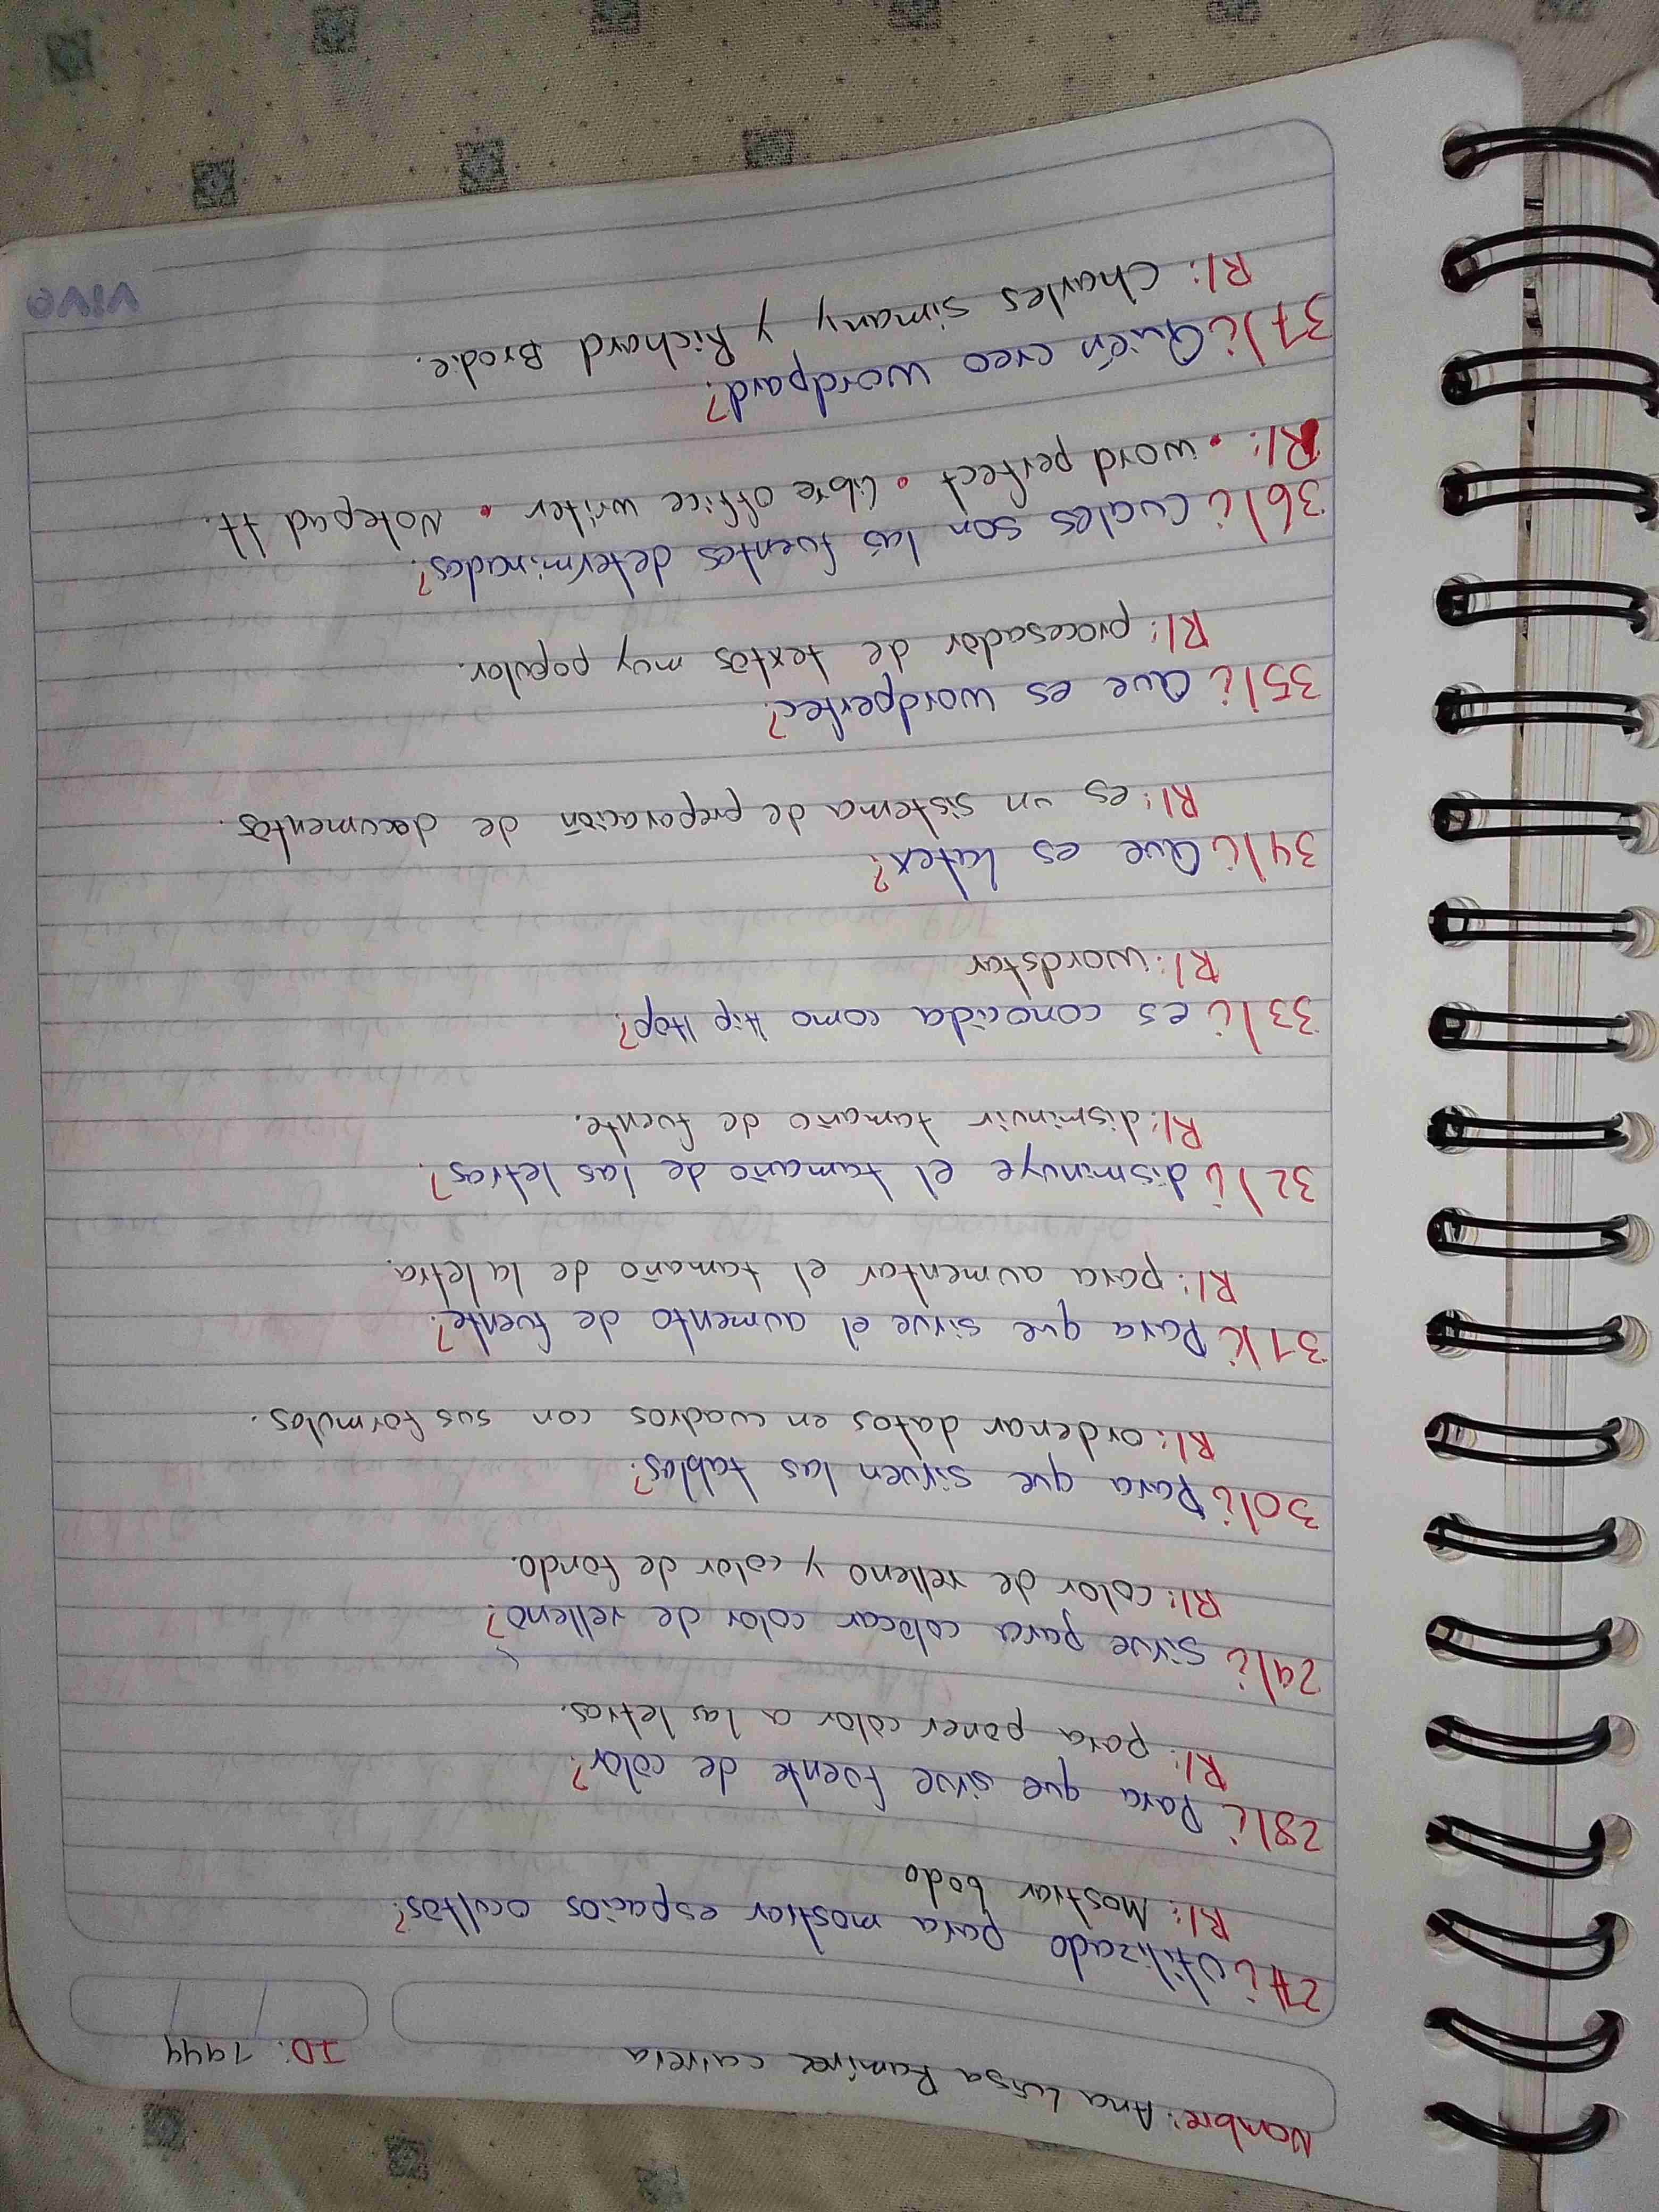 Nombre: Ana Luisa Ramírez
ID: 1944
27/¿Utilizado para mostrar espacios ocultos?
R/: Mostrar todo
28/¿Para que sirve fuente de color?
R/: para poner color a las letras.
29/¿ sirve para colocar color de relleno?
R/: color de relleno y color de fondo.
30/¿Para que sirven las tablas?
R/: ordenar datos en cuadros con sus formulas.
31/¿Para que sirve el aumento de fuente?
R/: para aumentar el tamaño de la letra.
32/¿ disminuye el tamaño de las letras?
R/: disminuir tamaño de fuente.
33/¿ es conocida como Hip Hop?
R/: wordstar
34/¿Que es latex?
R/: es un sistema de preparación de documentos.
35/¿ Que es wordperfec?
R/: procesador de textos muy popular.
36/¿ cuales son las fuentes determinadas?
R/: • word perfect • Libre office writer • Notepad ++.
37/¿Quién creo wordpard?
R/: Charles simany y Richard Brodie.
VIVO